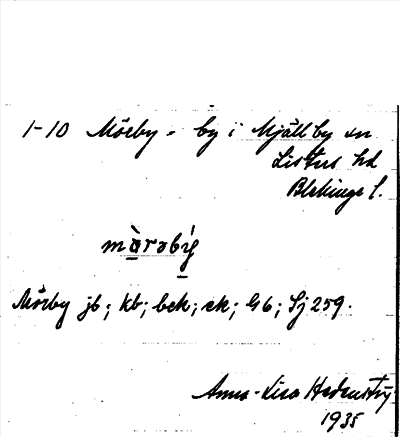 1-10 Mörby - by i Mjällby sn
Listers hd
Blekinge l.
Mörby jb; kb; bek; ek; G6; Sj 259.
Anna-Lisa
1935